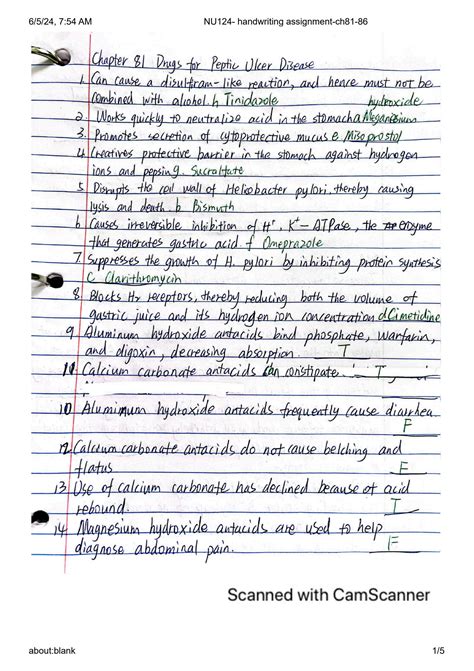 6/5/24, 7:54 AM NU124- handwriting assignment-ch81-86
Chapter 81 Drugs for Peptic Ulcer Disease
1. Can cause a disulfiram-like reaction, and hence must not be
combined with alcohol. h Tinidazole hydroxide
2. Works quickly to neutralize acid in the stomach a Magenesium
3. Promotes secretion of cytoprotective mucus e Misoprostol
4. Creatives protective barrier in the stomach against hydrogen
ions and pepsin g. Sucralfate
5. Disrupts the cell wall of Helicobacter pylori, thereby causing
lysis and death. b. Bismuth
6 Causes irreversible inhibition of H+, K+-ATPase, the enzyme
that generates gastric acid. f Omeprazole
7. Suppresses the growth of H. pylori by inhibiting protein synthesis
C Clarithromycin
8. Blocks H2 receptors, thereby reducing both the volume of
gastric juice and its hydrogen ion concentration d Cimetidine
9 Aluminum hydroxide antacids bind phosphate, Warfarin,
and digoxin, decreasing absorption. T
11 Calcium carbonate antacids can constipate. T
10 Aluminum hydroxide antacids frequently cause diarrhea.
F
12 Calcium carbonate antacids do not cause belching and
flatus F
13 Use of calcium carbonate has declined because of acid
rebound. T
14 Magnesium hydroxide antacids are used to help
diagnose abdominal pain. F
Scanned with CamScanner
about:blank 1/5